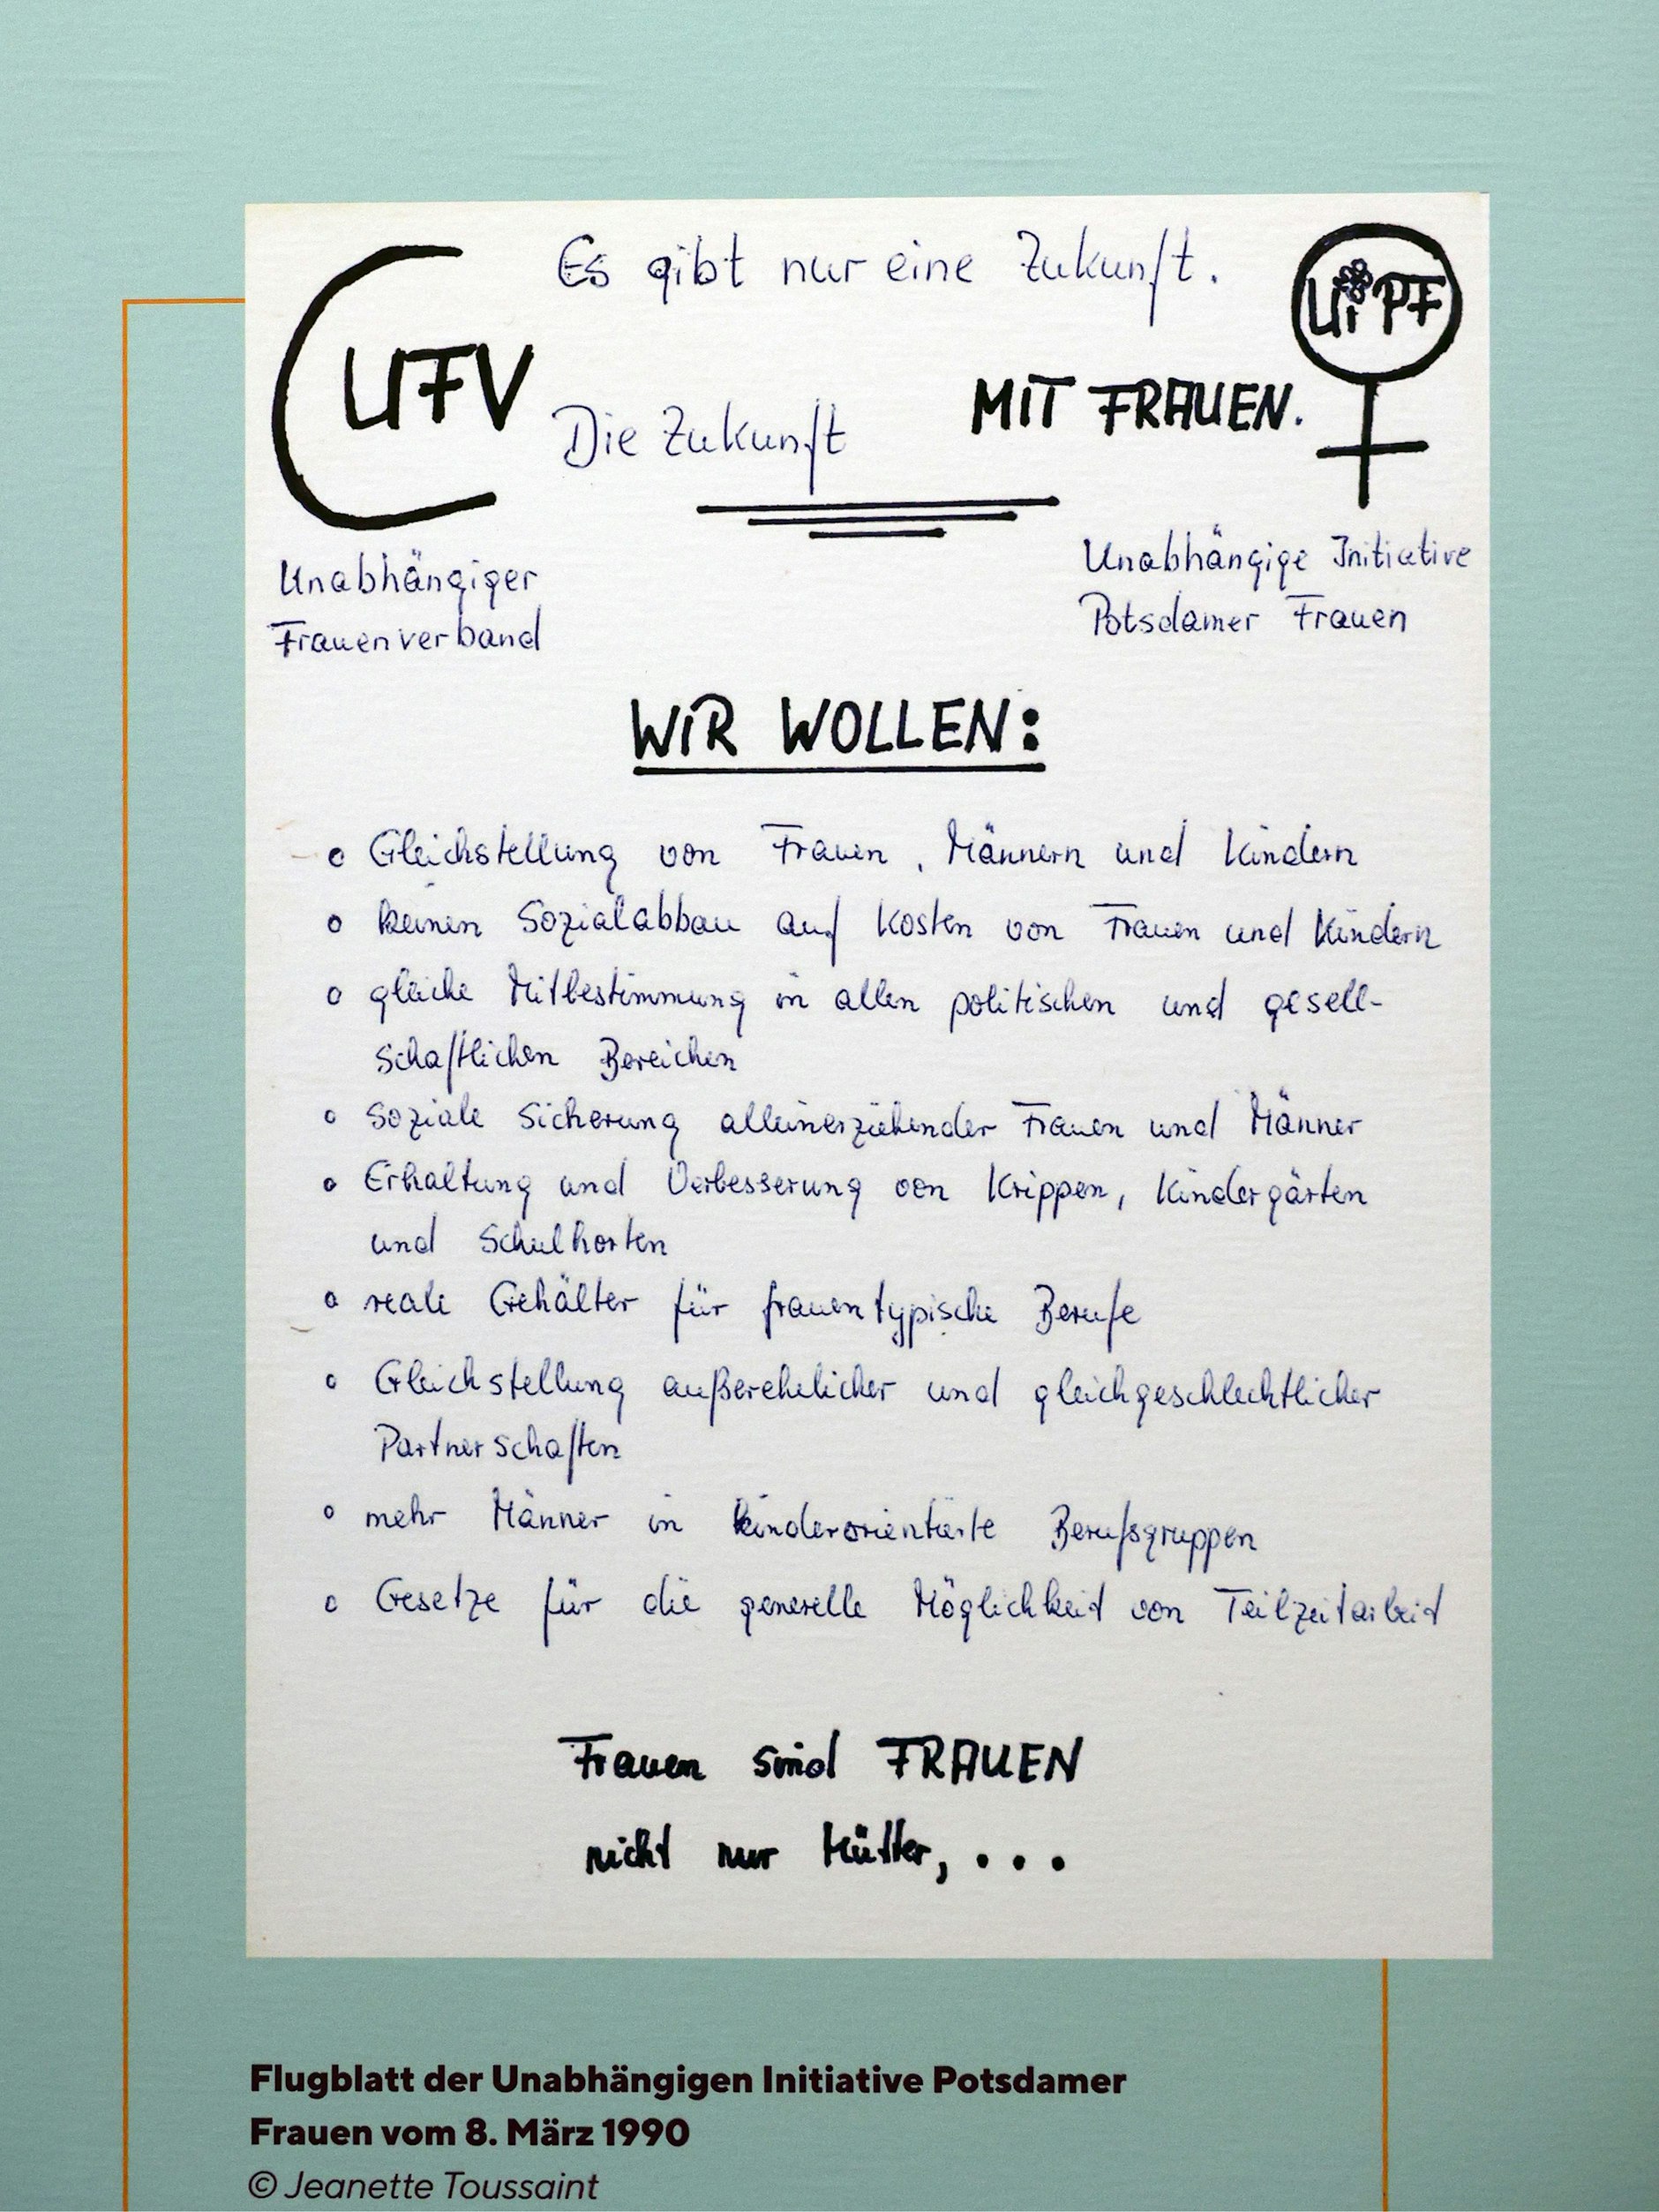 Es gibt nur eine Zukunft.
UiPF
UFV
Die Zukunft MIT FRAUEN.
Unabhängiger
Frauenverband
Unabhängige Initiative
Potsdamer Frauen
WIR WOLLEN:
o Gleichstellung von Frauen, Männern und Kindern
o keinen Sozialabbau auf Kosten von Frauen und Kindern
o gleiche Mitbestimmung in allen politischen und gesell-
schaftlichen Bereichen
o Soziale Sicherung alleinerziehender Frauen und Männer
o Erhaltung und Verbesserung von Krippen, Kindergärten
und Schulhorten
o reale Gehälter für frauentypische Berufe
o Gleichstellung außerehelicher und gleichgeschlechtlicher
Partnerschaften
o mehr Männer in kinderorientierte Berufsgruppen
o Gesetze für die generelle Möglichkeit von Teilzeitarbeit
Frauen sind FRAUEN
nicht nur Mütter, ...
Flugblatt der Unabhängigen Initiative Potsdamer
Frauen vom 8. März 1990
© Jeanette Toussaint